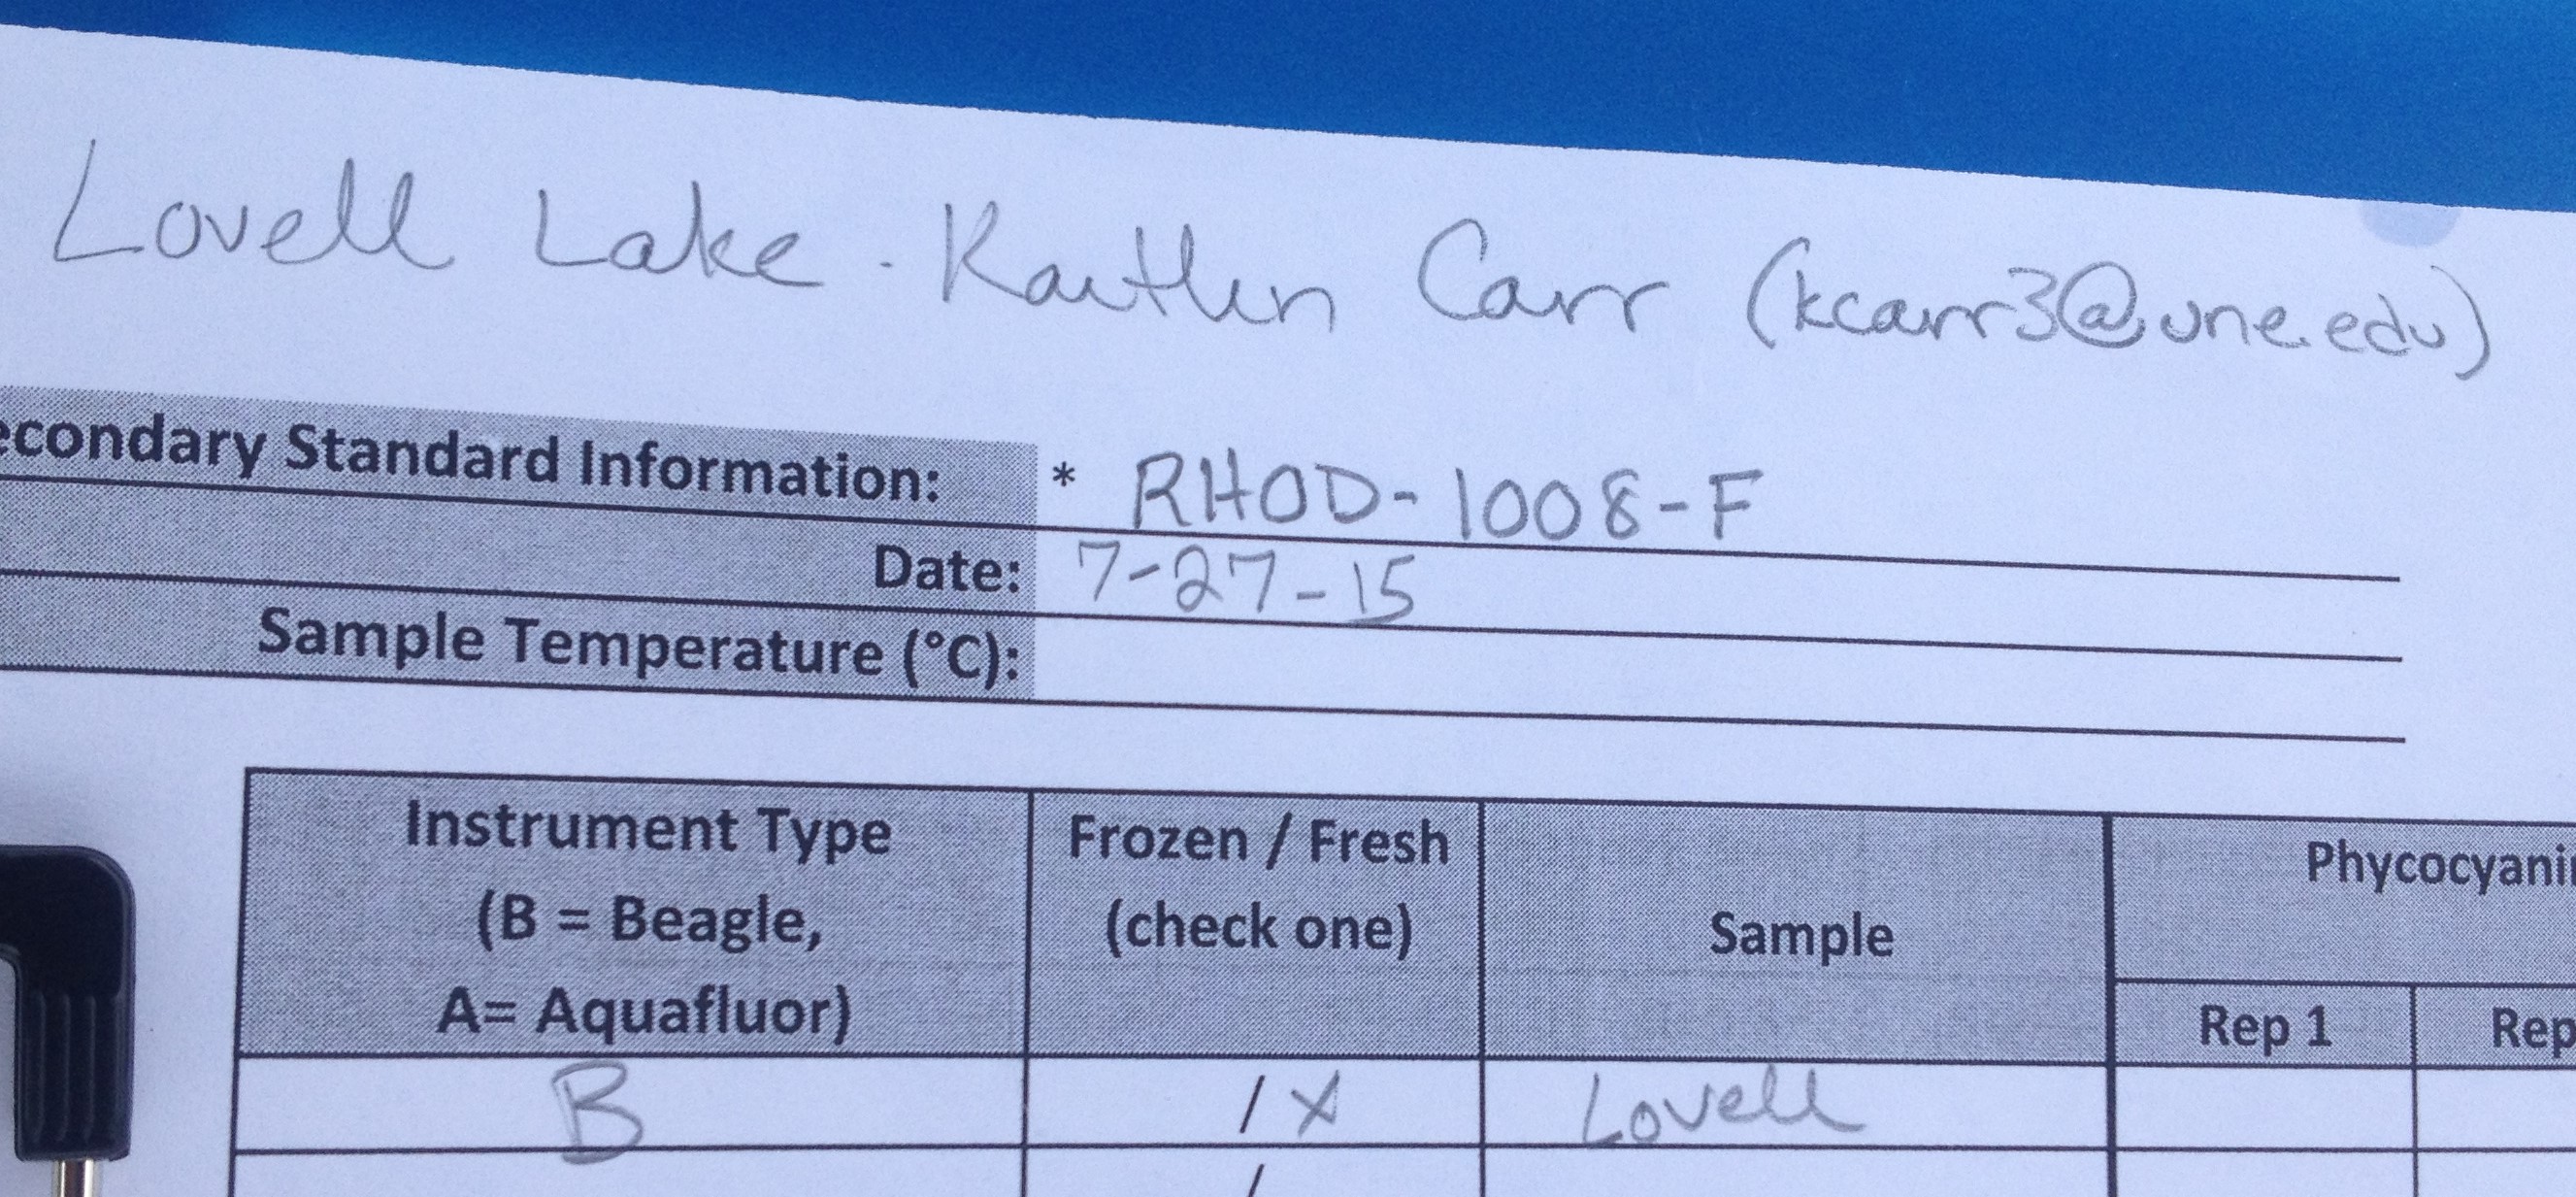 Lovell Lake - Kaitlin Carr (kcarr3@une.edu)
econdary Standard Information: * RHOD-1008-F
Date: 7-27-15
Sample Temperature (°C):
Instrument Type
(B = Beagle,
A= Aquafluor)
Frozen / Fresh
(check one)
Sample
Phycocyani
Rep 1 Rep
B / X Lovell
/